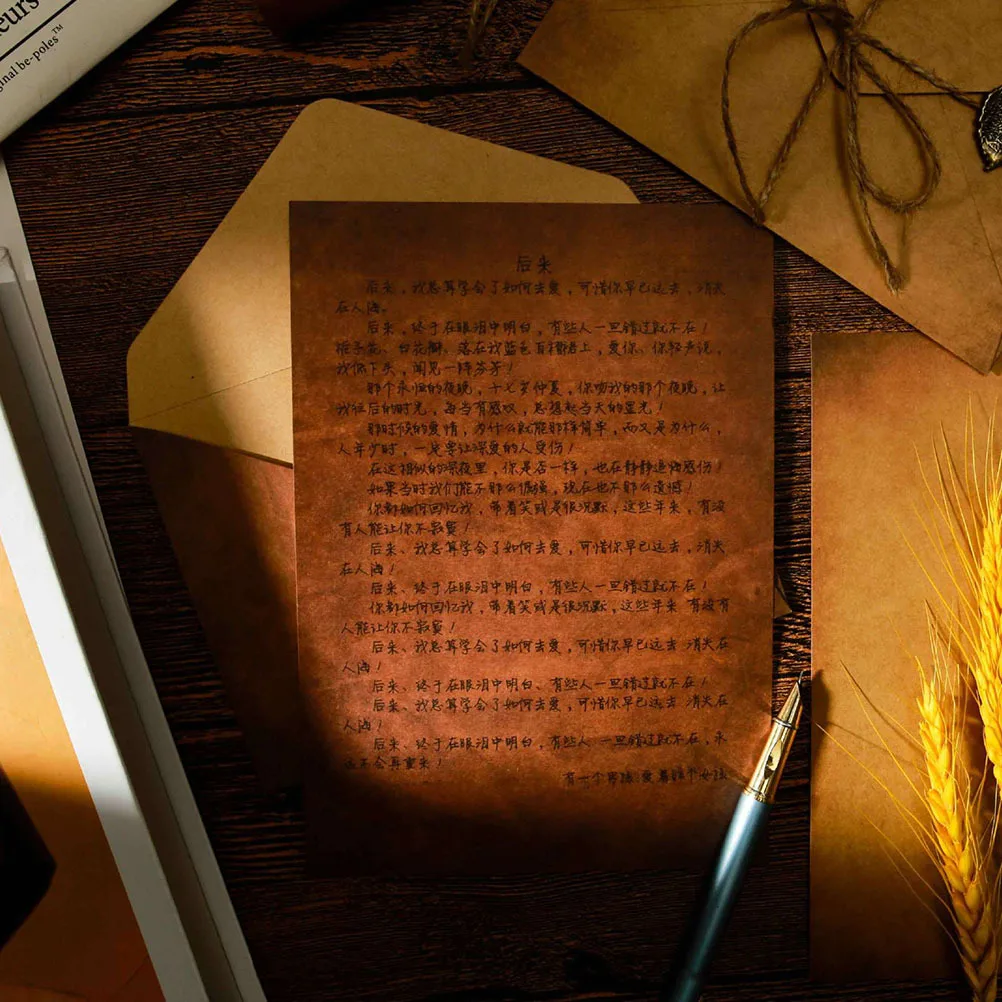 eurs
ginal be-poles™
后来
后来,我总算学会了如何去爱,可惜你早已远去,消失
在人海。
后来,终于在眼泪中明白,有些人一旦错过就不在!
栀子花、白花瓣、落在我蓝色百褶裙上,爱你、你轻声说,
我低下头,闻见一阵芬芳!
那个永恒的夜晚,十七岁仲夏,你吻我的那个夜晚,让
我往后的时光,每当有感叹,总想起当天的星光!
那时候的爱情,为什么就能那样简单,而又是为什么,
人年少时,一定要让深爱的人受伤!
在这相似的深夜里,你是否一样,也在静静追悔感伤!
如果当时我们能不那么倔强,现在也不那么遗憾!
你都如何回忆我,带着笑或是很沉默,这些年来,有没
有人能让你不寂寞!
后来、我总算学会了如何去爱,可惜你早已远去,消失
在人海!
后来、终于在眼泪中明白,有些人一旦错过就不在!
你都如何回忆我,带着笑或是很沉默,这些年来 有没有
人能让你不寂寞!
后来、我总算学会了如何去爱,可惜你早已远去 消失在
人海!
后来、终于在眼泪中明白、有些人一旦错过就不在!
后来、我总算学会了如何去爱,可惜你早已远去 消失在
人海!
后来、终于在眼泪中明白,有些人 一旦错过就不在,永
远不会再重来!
有一个男孩 爱着那个女孩